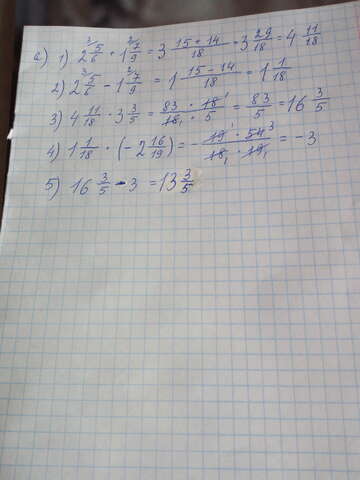 а) 1) 2 5/6 + 1 7/9 = 3 (15 + 14)/18 = 3 29/18 = 4 11/18
2) 2 5/6 - 1 7/9 = 1 (15 - 14)/18 = 1 1/18
3) 4 11/18 · 3 3/5 = (83 · 18)/(18 · 5) = 83/5 = 16 3/5
4) 1 1/18 · (-2 16/19) = - (19 · 54)/(18 · 19) = -3
5) 16 3/5 - 3 = 13 3/5